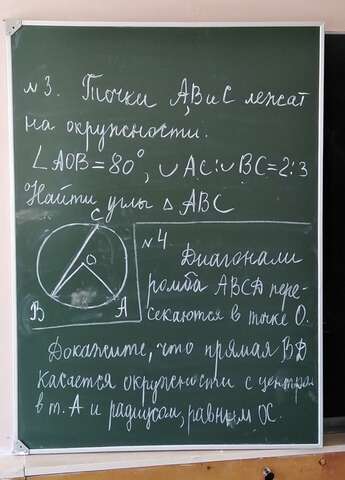 №3. Точки А,В и С лежат
на окружности.
∠AOB=80°, ∪AC:∪BC=2:3
Найти углы △ ABC
C
O
B
A
№4
Диагонали
ромба ABCD пере-
секаются в точке O.
Докажите, что прямая BD
касается окружности с центром
в т. A и радиусом, равным OC.